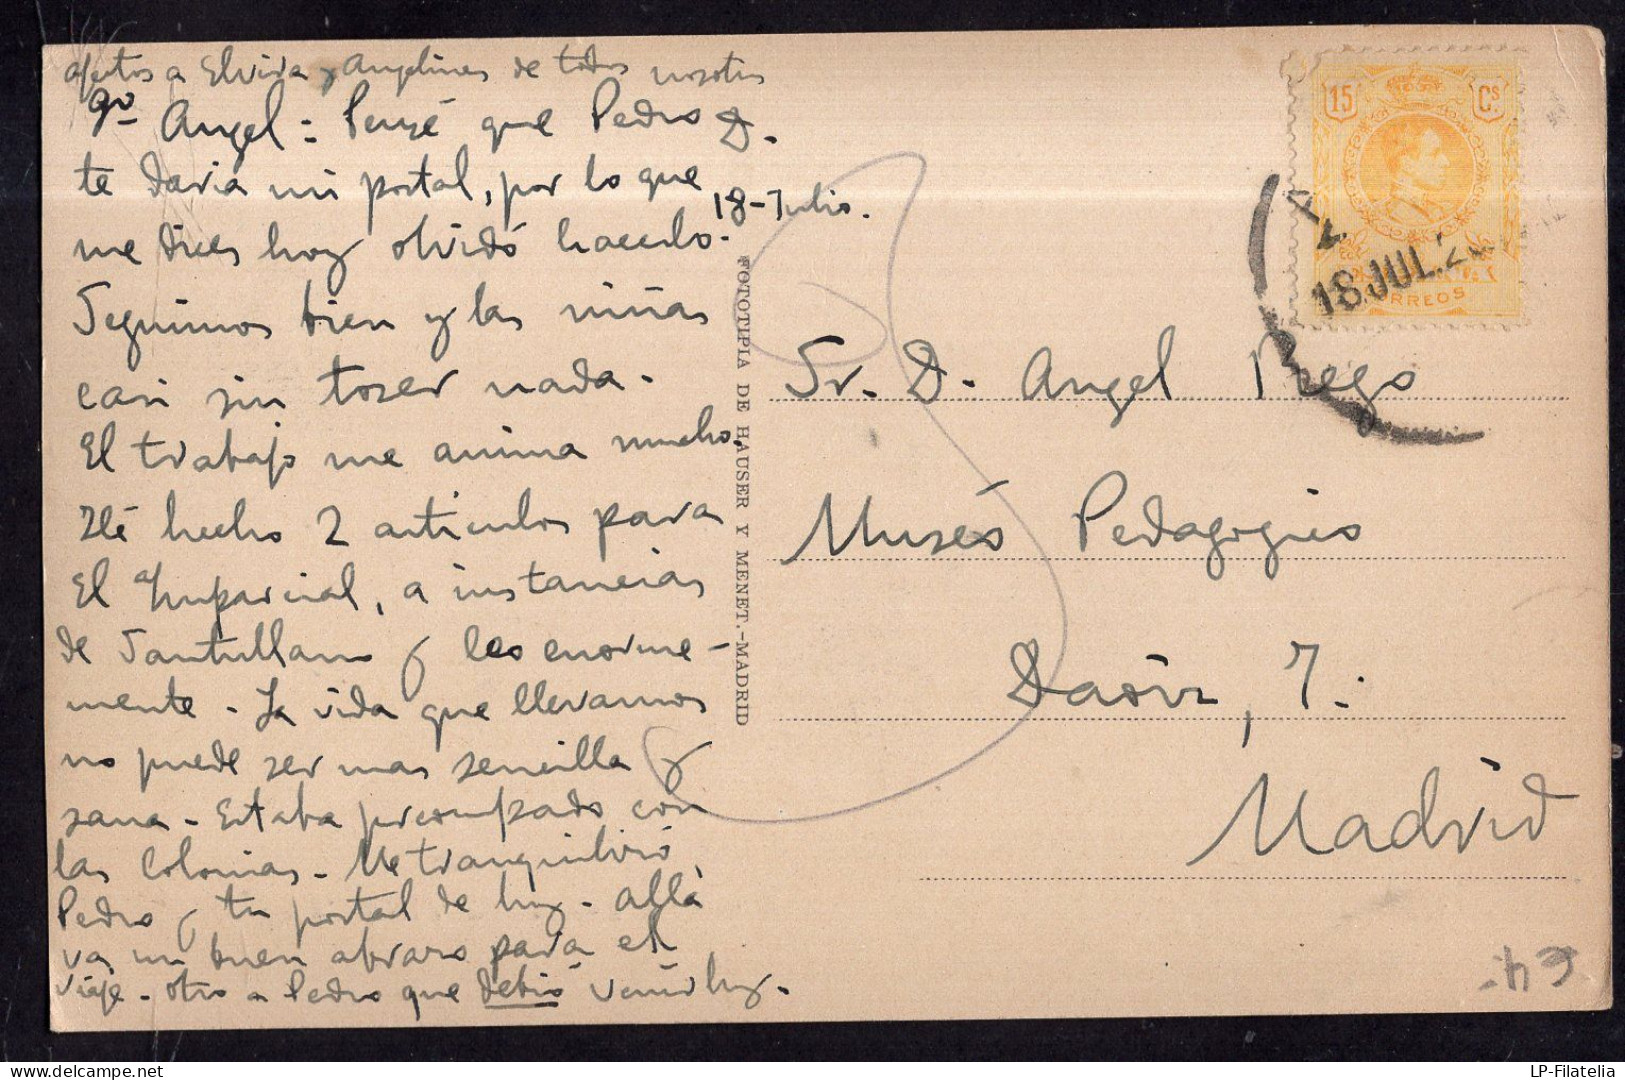 afectos a Elvira y Angelines de todos nosotros
Qdo Angel = Pensé que Pedro D.
te daria mi postal, por lo que
me dices hoy olvidó hacerlo.
18-Julio.
Seguimos bien y las niñas
casi sin toser nada.
El trabajo me anima mucho.
He hecho 2 articulos para
El Imparcial, a instancias
de Santullano y leo enorme-
mente. La vida que llevamos
no puede ser mas sencilla y
sana. Estaba preocupado con
las Colonias. Me tranquilizó
Pedro y tu postal de hoy. Allá
va un buen abrazo para el
viaje. otro a Pedro que debió venir hoy.
FOTOTIPIA DE HAUSER Y MENET.-MADRID
15 Cs
CORREOS
18 JUL. 2
Sr. D. Angel Rego
Museo Pedagogico
Daoiz, 7.
Madrid
LP-Filatelia